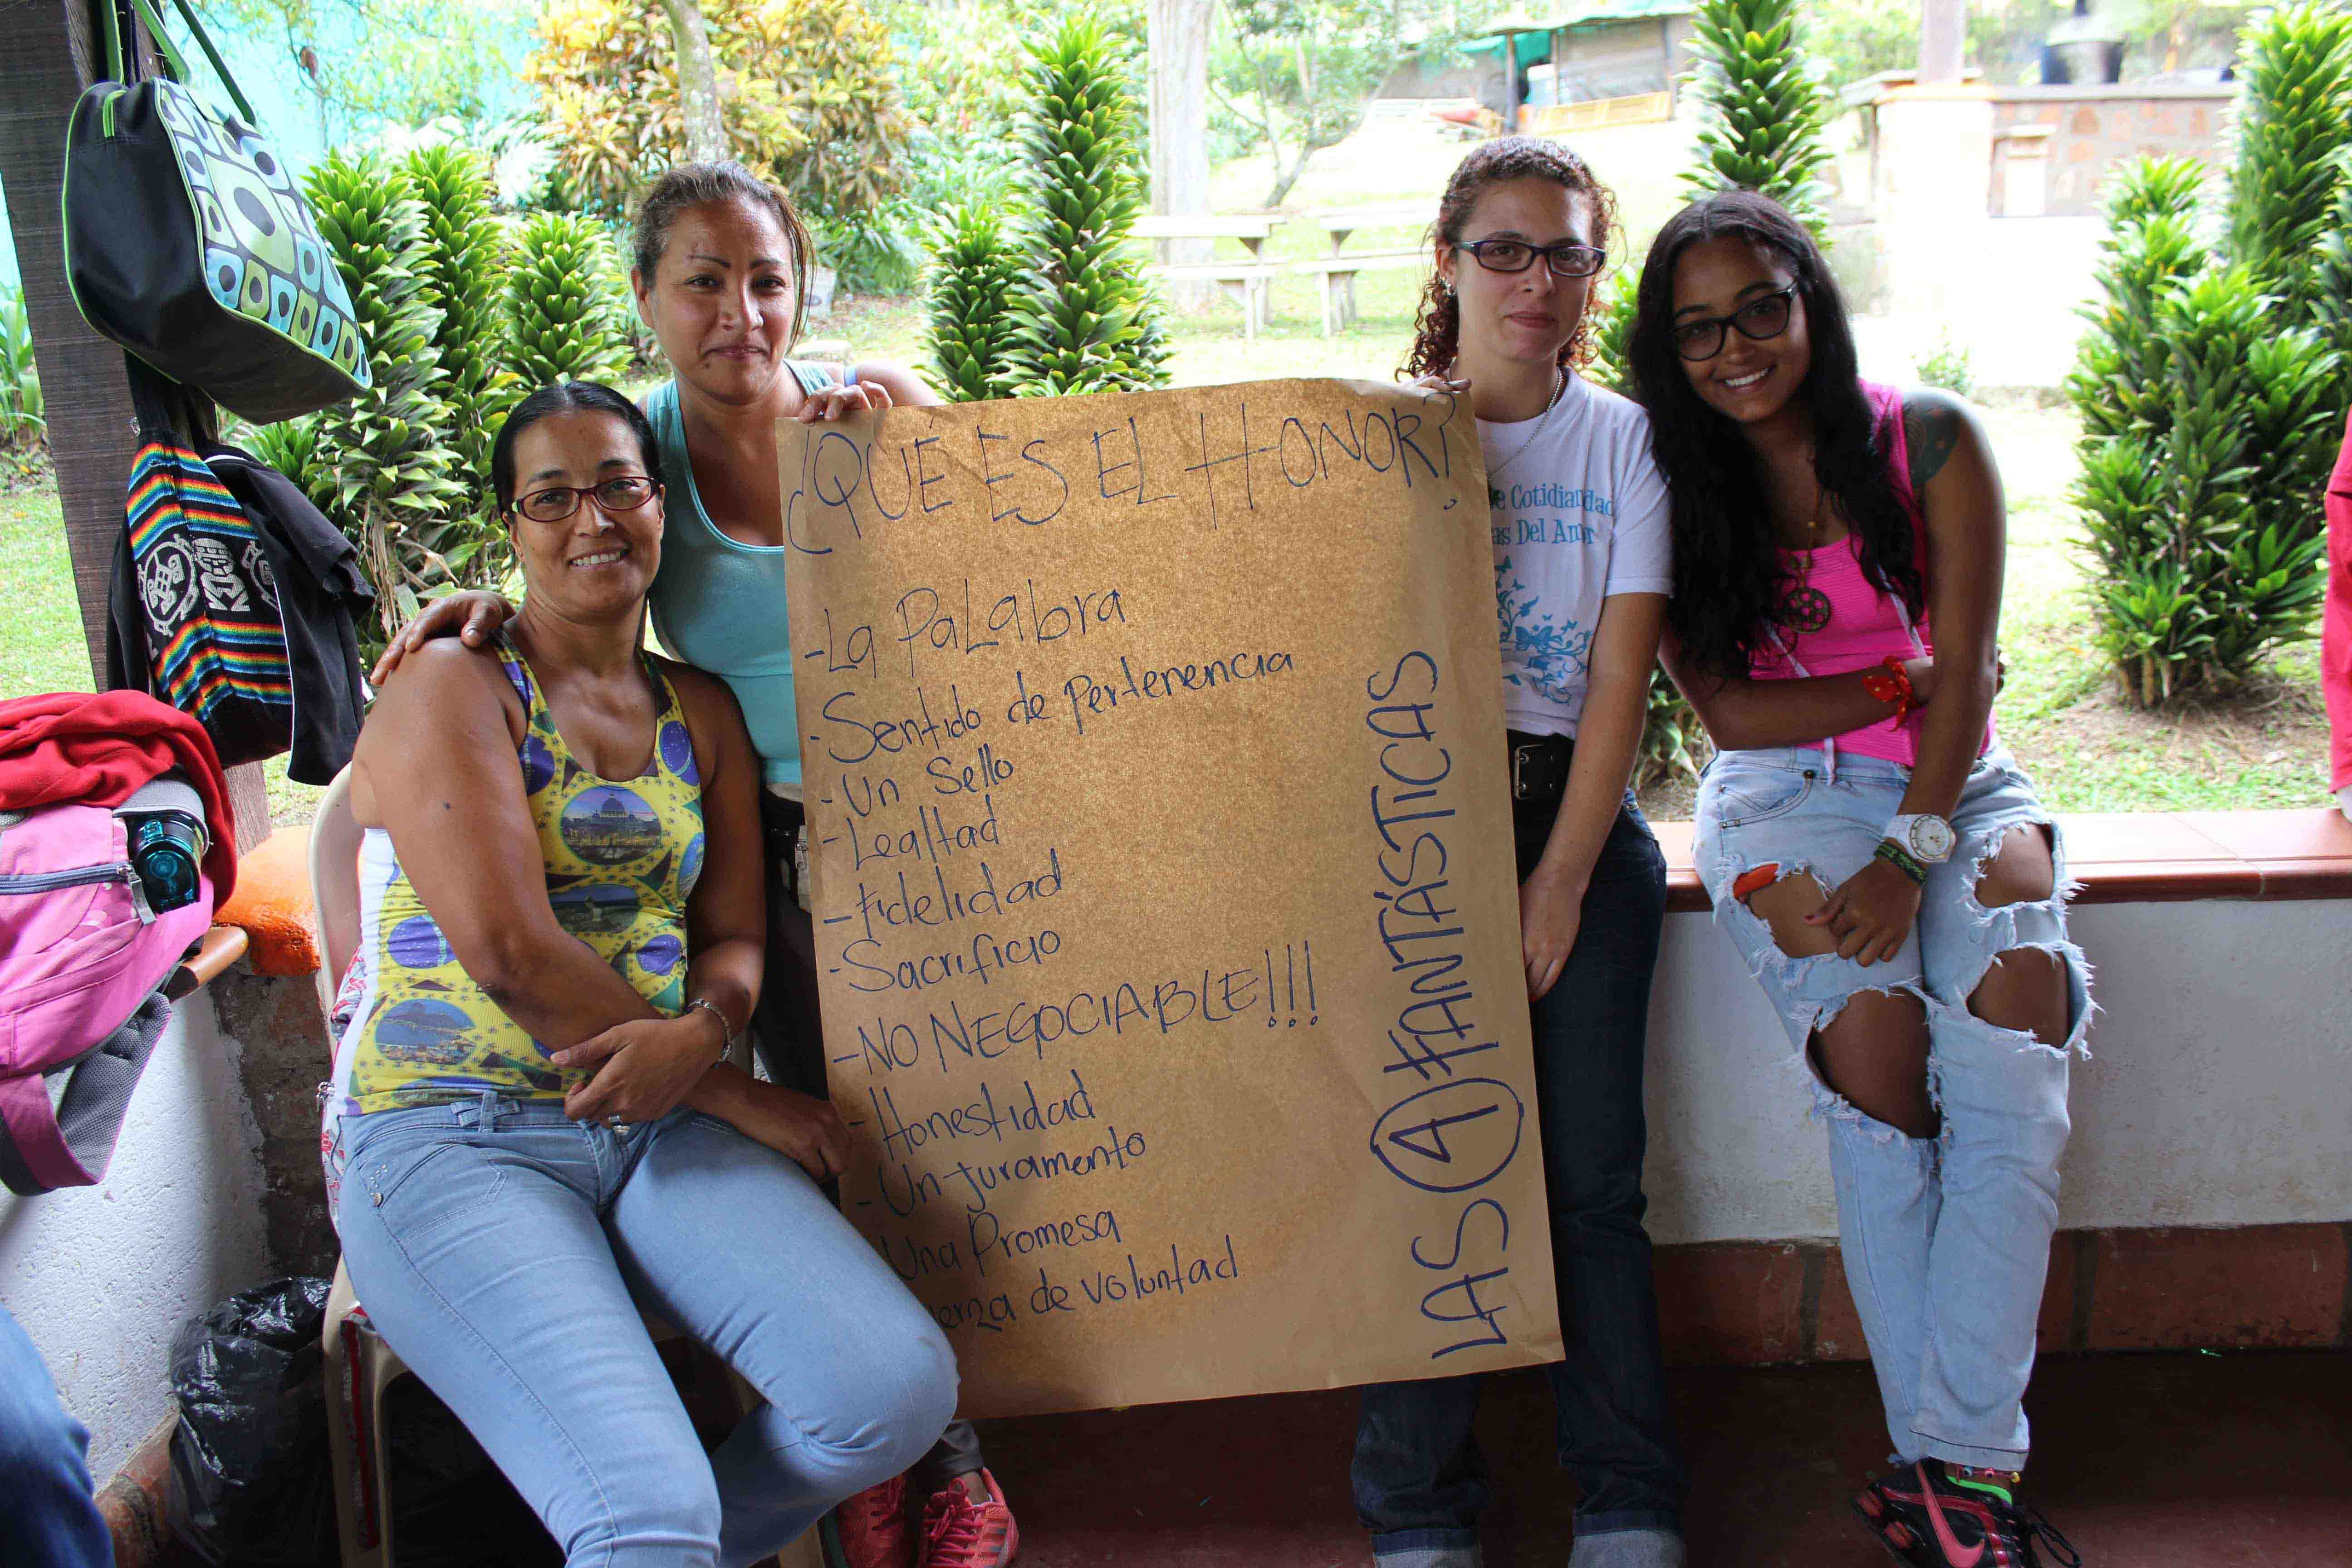 ¿QUÉ ES EL HONOR?
-La PaLabra
-Sentido de pertenencia
-Un Sello
-Lealtad
-Fidelidad
-Sacrificio
-NO NEGOCIABLE!!!
-Honestidad
-Un juramento
Una Promesa
de voluntad
LAS 4 FANTÁSTICAS
Cotidianidad
Del Amor